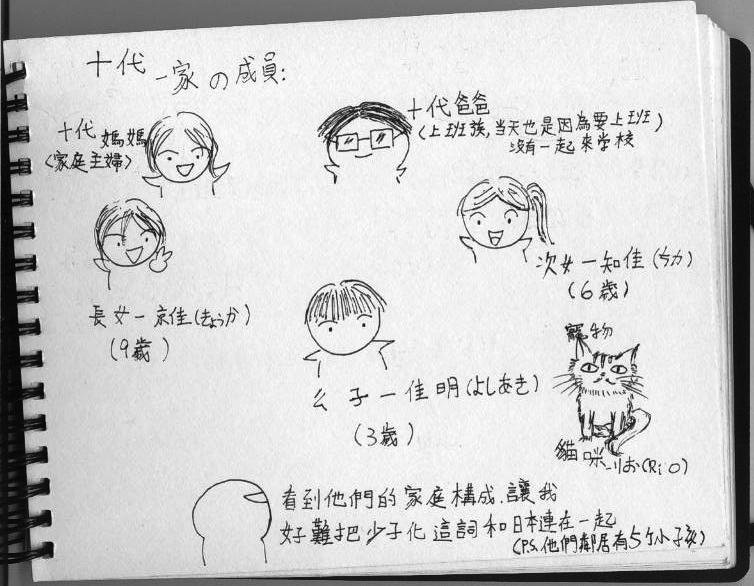 十代一家の成員:
十代媽媽
<家庭主婦>
十代爸爸
(上班族,當天也是因為要上班)
沒有一起來學校
長女一京佳(きょうか)
(9歲)
次女一知佳(ちか)
(6歲)
么子一佳明(よしあき)
(3歲)
寵物
貓咪-りお(Rio)
看到他們的家庭構成,讓我
好難把少子化這詞和日本連在一起
(PS.他們鄰居有5个小孩)